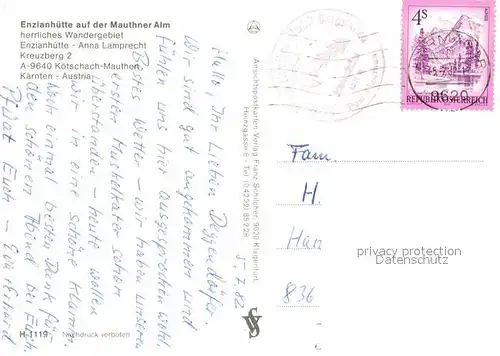 Enzianhütte auf der Mauthner Alm
herrliches Wandergebiet
Enzianhütte - Anna Lamprecht
Kreuzberg 2
A-9640 Kötschach-Mauthen
Kärnten - Austria
5.7.82
Hallo Ihr Lieben Deggendorfer.
Wir sind gut angekommen und
fühlen uns hier ausgesprochen wohl.
Bestes Wetter - wir haben unseren
ersten Muskelkater schon
überstanden - heute wollen
wir in eine schöne Klamm.
Noch einmal besten Dank für
den schönen Abend bei Euch.
Pfüat Euch -
H-1119
Nachdruck verboten
Ansichtspostkarten Verlag Franz Schilcher, 9020 Klagenfurt,
Heinzgasse 8 - Tel (04222) 85228
4S
REPUBLIK ÖSTERREICH
9620
Fam.
H.
Han
836
privacy protection
Datenschutz